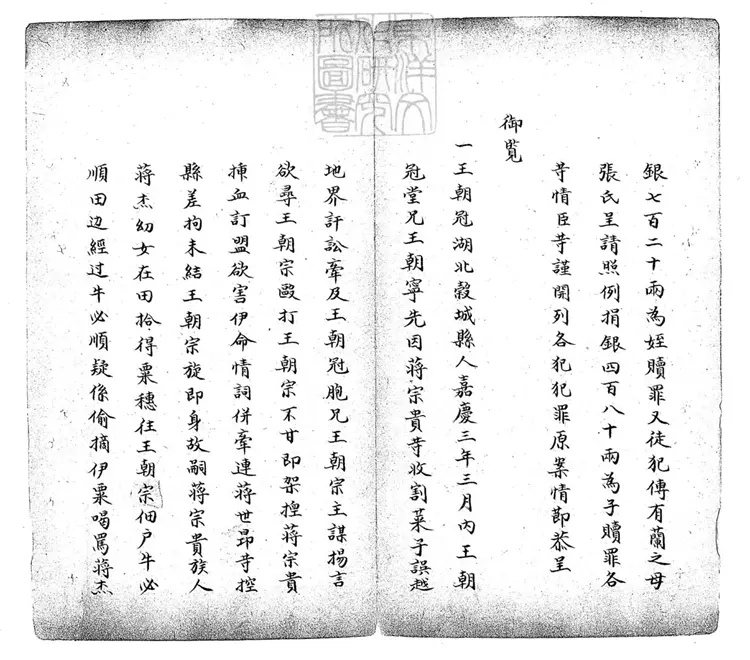 銀七百二十兩為姪贖罪又徒犯傅有蘭之母
張氏呈請照例捐銀四百八十兩為子贖罪各
等情臣等謹開列各犯犯罪原案情節恭呈
御覧
一王朝冠湖北穀城縣人嘉慶三年三月内王朝
冠堂兄王朝寧先因蔣宗貴等收割菜子誤越
地界訐訟牽及王朝冠胞兄王朝宗主謀揚言
欲尋王朝宗毆打王朝宗不甘即架捏蔣宗貴
揷血訂盟欲害伊命情詞併牽連蔣世昂等控
縣差拘未結王朝宗旋即身故嗣蔣宗貴族人
蔣杰幼女在田拾得粟穗往王朝宗佃戶牛必
順田边經过牛必順疑係偷摘伊粟喝罵蔣杰
東洋文
化研究
所圖書